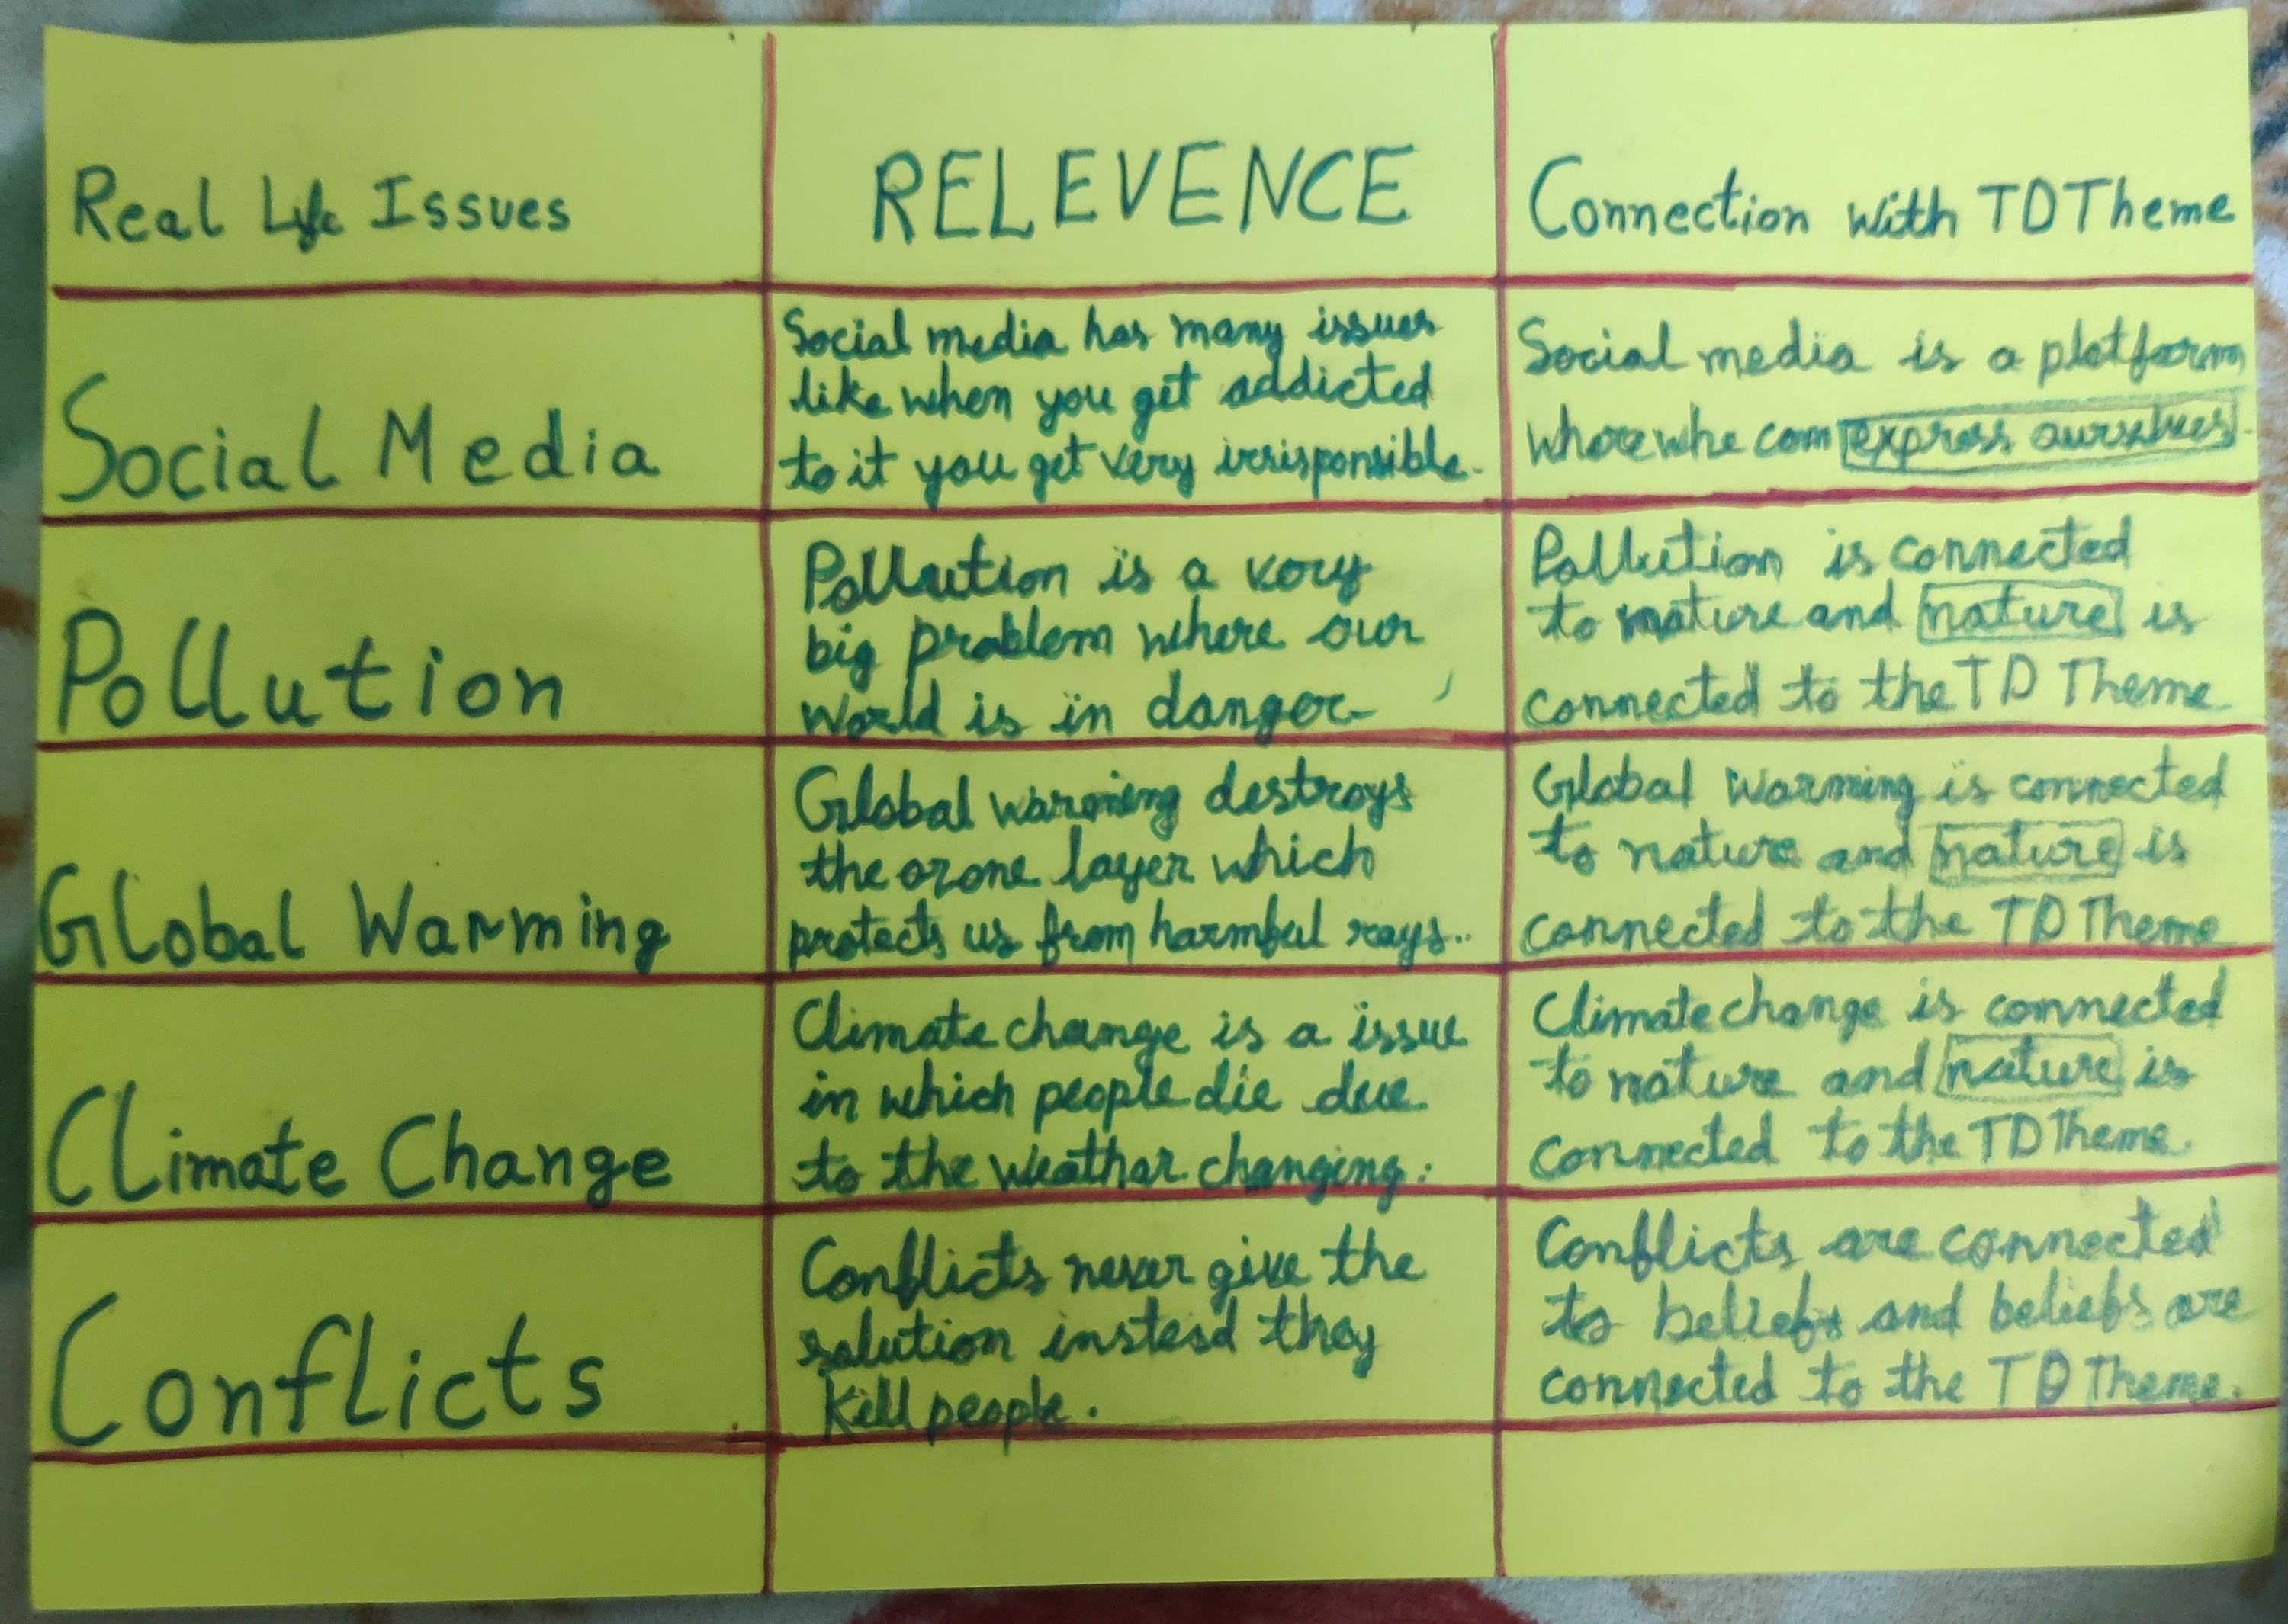 Real Life Issues
RELEVENCE
Connection with TD Theme
Social Media
Social media has many issues
like when you get addicted
to it you get very irrisponsible.
Social media is a platform
where whe com express ourselves.
Pollution
Pollution is a very
big problem where our
World is in danger
Pollution is connected
to nature and nature is
connected to the TD Theme
Global Warming
Global warming destroys
the ozone layer which
protects us from harmful rays..
Global Warming is connected
to nature and nature is
connected to the TD Theme
Climate Change
Climate change is a issue
in which people die due
to the weather changing.
Climate change is connected
to nature and nature is
connected to the TD Theme.
Conflicts
Conflicts never give the
solution instead they
kill people.
Conflicts are connected
to beliefs and beliefs are
connected to the TD Theme.